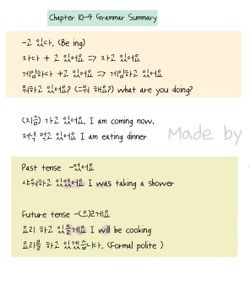 Chapter 10-4 Grammar Summary
-고 있다. (Be ing)
자다 + 고 있어요 => 자고 있어요
게임하다 +고 있어요 => 게임하고 있어요
뭐하고 있어요? (=뭐 해요?) what are you doing?
(지금) 가고 있어요. I am coming now.
저녁 먹고 있어요 I am eating dinner
Made by
Past tense -있었어요
샤워하고 있었어요 I was taking a shower
Future tense -(으)ㄹ게요
요리 하고 있을게요 I will be cooking
요리를 하고 있겠습니다. (Formal polite )